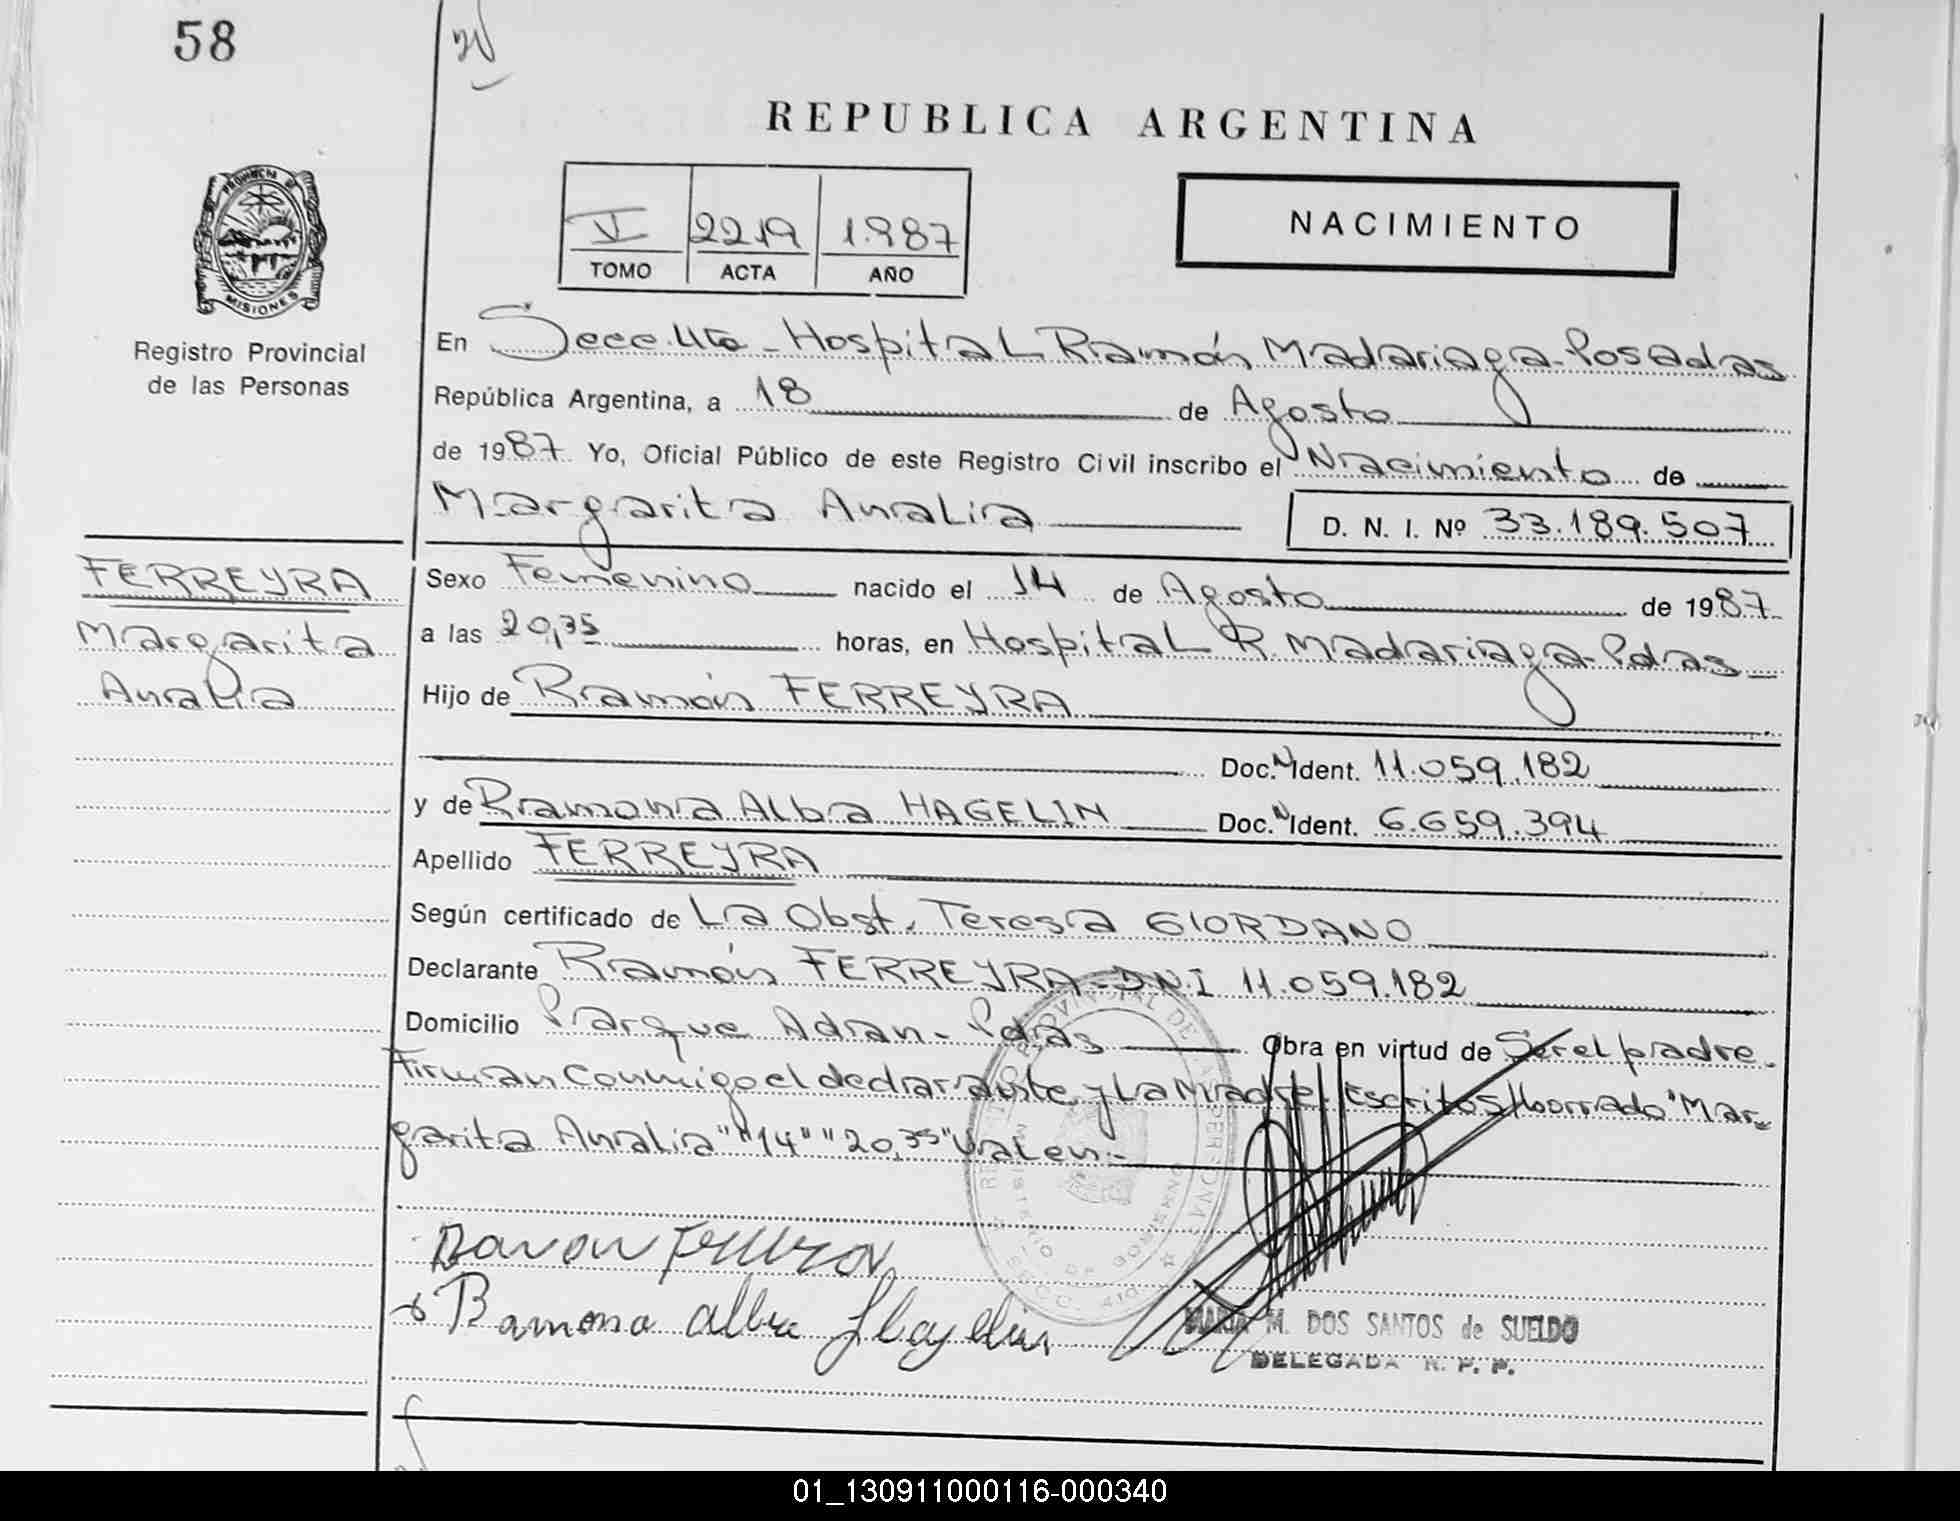 58
REPUBLICA ARGENTINA
PROVINCIA DE
MISIONES
Registro Provincial
de las Personas
V 2219 1.987
TOMO ACTA AÑO
NACIMIENTO
En Secc. 4ta - Hospital Ramón Madariaga - Posadas
República Argentina, a 18 de Agosto
de 1987 Yo, Oficial Público de este Registro Civil inscribo el Nacimiento de
Margarita Analia D. N. I. Nº 33.189.507
FERREYRA
Margarita
Analia
Sexo Femenino nacido el 14 de Agosto de 1987
a las 20,35 horas, en Hospital R. Madariaga - Pdas
Hijo de Ramón FERREYRA
Doc. N Ident. 11.059.182
y de Ramona Alba HAGELIN Doc. N Ident. 6.659.394
Apellido FERREYRA
Según certificado de La Obst. Teresa GIORDANO
Declarante Ramón FERREYRA - D.N.I 11.059.182
Domicilio Parque Adan - Pdas Obra en virtud de Ser el padre.
Firman conmigo el declarante y La Madre. Escritos s/borrado "Mar-
garita Analia" "14" "20,35" Valen.-
Ramon Ferreyra
Ramona Alba Hagelin
MARIA M. DOS SANTOS de SUELDO
DELEGADA R. P. P.
01_130911000116-000340